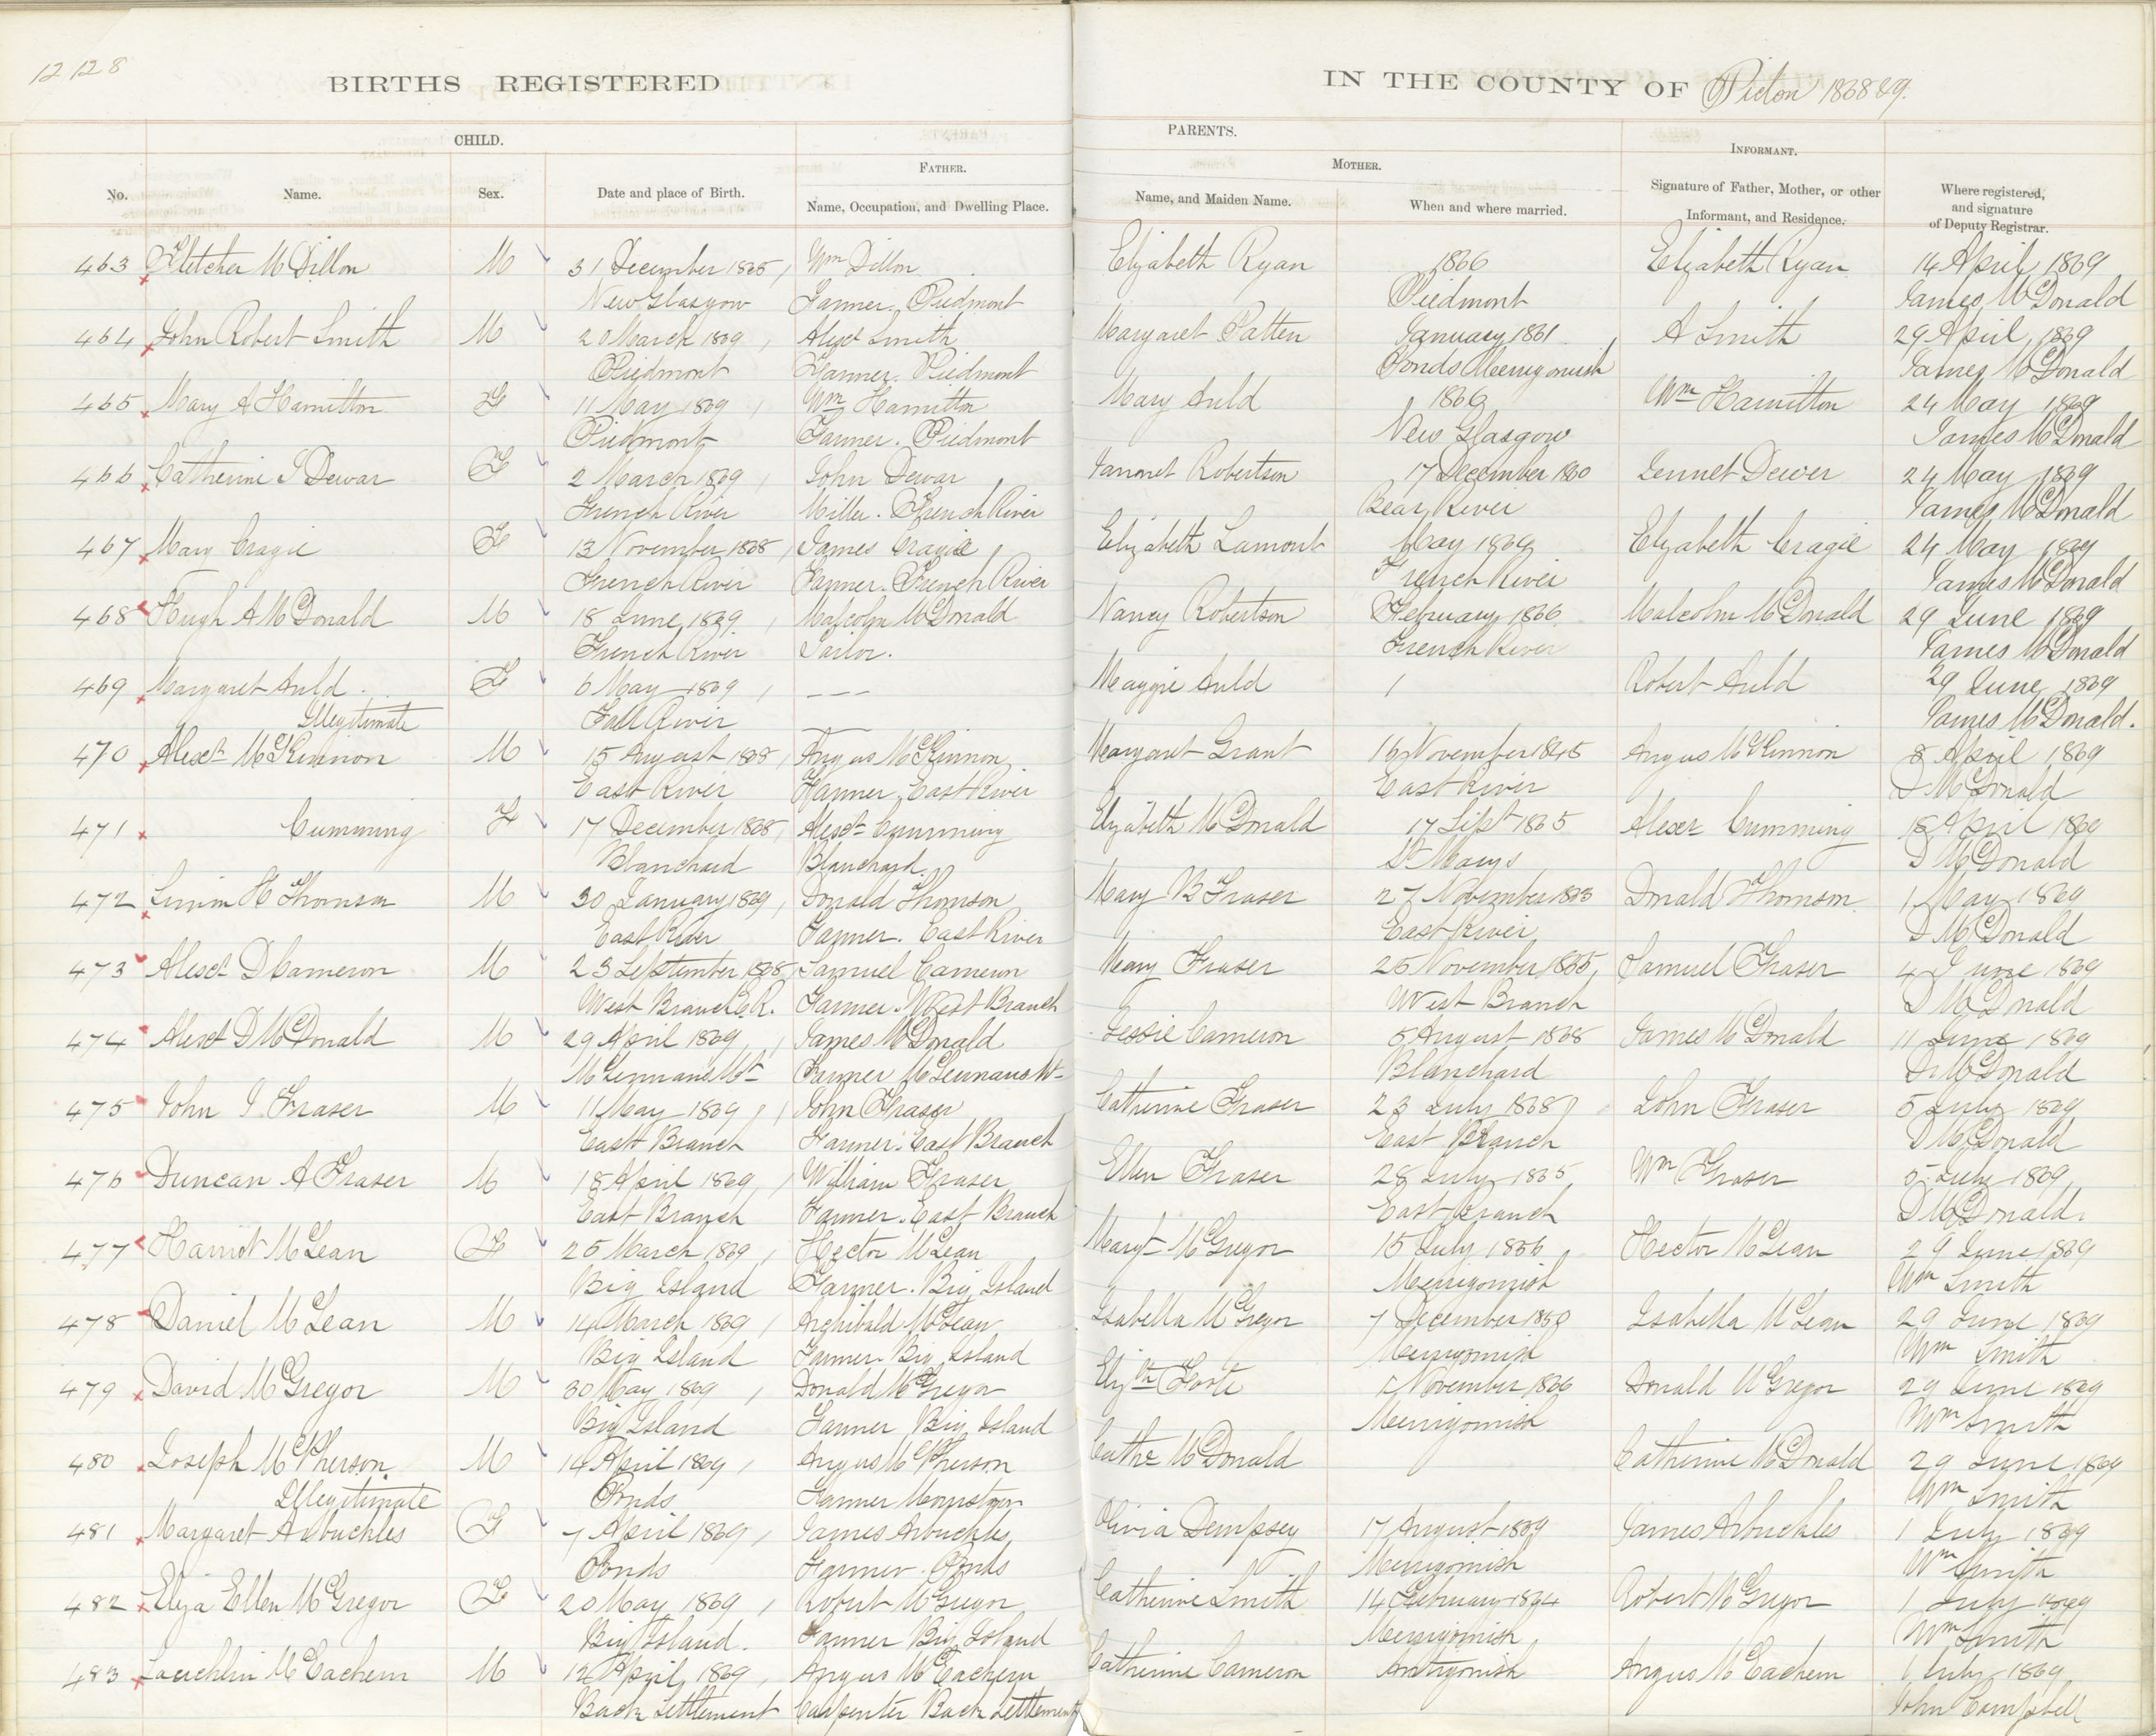 12 128
BIRTHS REGISTERED IN THE COUNTY OF Picton 1868 & 9.
CHILD. PARENTS.
FATHER. MOTHER. INFORMANT.
No. Name. Sex. Date and place of Birth. Name, Occupation, and Dwelling Place. Name, and Maiden Name. When and where married. Signature of Father, Mother, or other Informant, and Residence. Where registered, and signature of Deputy Registrar.
463 Fletcher McDillon M 31 December 1865, Wm Dillon Elizabeth Ryan 1866 Elizabeth Ryan 14 April 1869
New Glasgow Farmer. Piedmont Piedmont James McDonald
464 John Robert Smith M 20 March 1869, Alexr Smith Margaret Patten January 1861 A Smith 29 April 1869
Piedmont Farmer. Piedmont Ponds Merrigomish James McDonald
465 Mary A Hamilton F 11 May 1869, Wm Hamilton Mary Auld 1866 Wm Hamilton 24 May 1869
Piedmont Farmer. Piedmont New Glasgow James McDonald
466 Catherine J Dewar F 2 March 1869, John Dewar Jannet Robertson 17 December 1860 Jennet Dewer 24 May 1869
French River Miller. French River Bear River James McDonald
467 Mary Cragie F 13 November 1868, James Cragie Elizabeth Lamont May 186 Elizabeth Cragie 24 May 1869
French River Farmer. French River French River James McDonald
468 Hugh A McDonald M 18 June 1869, Malcolm McDonald Nancy Robertson February 1866 Malcolm McDonald 29 June 1869
French River Tailor. French River James McDonald
469 Margaret Auld F 6 May 1869, --- Maggie Auld / Robert Auld 29 June 1869
Illegitimate Fall River James McDonald.
470 Alexr McKinnon M 15 August 1868, Angus McKinnon Margaret Grant 16 November 1845 Angus McKinnon 8 April 1869
East River Farmer, East River East River D McDonald
471 Cumming F 17 December 1868, Alexr Cumming Elizabeth McDonald 17 Sept 1865 Alexr Cumming 18 April 1869
Blanchard Blanchard. St Marys D McDonald
472 H Thomson M 30 January 1869, Donald Thomson Mary B Fraser 27 November 1863 Donald Thomson 1 May 1869
East River Farmer. East River East River D McDonald
473 Alexr D Cameron M 23 September 1868, Samuel Cameron Mary Fraser 25 November 1865, Samuel Fraser 4 June 1869
West Branch E.R. Farmer. West Branch West Branch D McDonald
474 Alexr D McDonald M 29 April 1869, James McDonald Jessie Cameron 5 August 1868 James McDonald 11 June 1869
McLennans Mt Farmer McLennans Mt Blanchard D McDonald
475 John J Fraser M 11 May 1869, John Fraser Catherine Fraser 23 July 1868 John Fraser 5 July 1869
East Branch Farmer. East Branch East Branch D McDonald
476 Duncan A Fraser M 18 April 1869, William Fraser Ellen Fraser 28 July 1865 Wm Fraser 5 July 1869
East Branch Farmer. East Branch East Branch D McDonald.
477 Harriet McLean F 25 March 1869, Hector McLean Margt McGregor 15 July 1856 Hector McLean 29 June 1869
Big Island Farmer. Big Island Merrigomish Wm Smith
478 Daniel McLean M 14 March 1869, Archibald McLean Isabella McGregor 7 December 1859 Isabella McLean 29 June 1869
Big Island Farmer. Big Island Merrigomish Wm Smith
479 David McGregor M 30 May 1869, Donald McGregor Elizth Foote November 1866 Donald McGregor 29 June 1869
Big Island Farmer Big Island Merrigomish Wm Smith
480 Joseph McPherson M 14 April 1869, Angus McPherson Cathe McDonald Catherine McDonald 29 June 1869
Illegitimate Ponds Farmer Wm Smith
481 Margaret Arbuckles F 7 April 1869, James Arbuckles Olivia Dempsey 17 August 1869 James Arbuckles 1 July 1869
Ponds Farmer. Ponds Merrigomish Wm Smith
482 Eliza Ellen McGregor F 20 May 1869, Robert McGregor Catherine Smith 14 February 1864 Robert McGregor 1 July 1869
Big Island. Farmer Big Island Merrigomish Wm Smith
483 Lauchlin McEachern M 12 April 1869, Angus McEachern Catherine Cameron Antigonish Angus McEachern 1 July 1869
Back Settlement Carpenter Back Settlement John Campbell